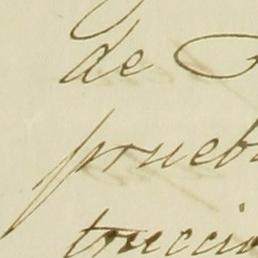 de
prueb
truccio